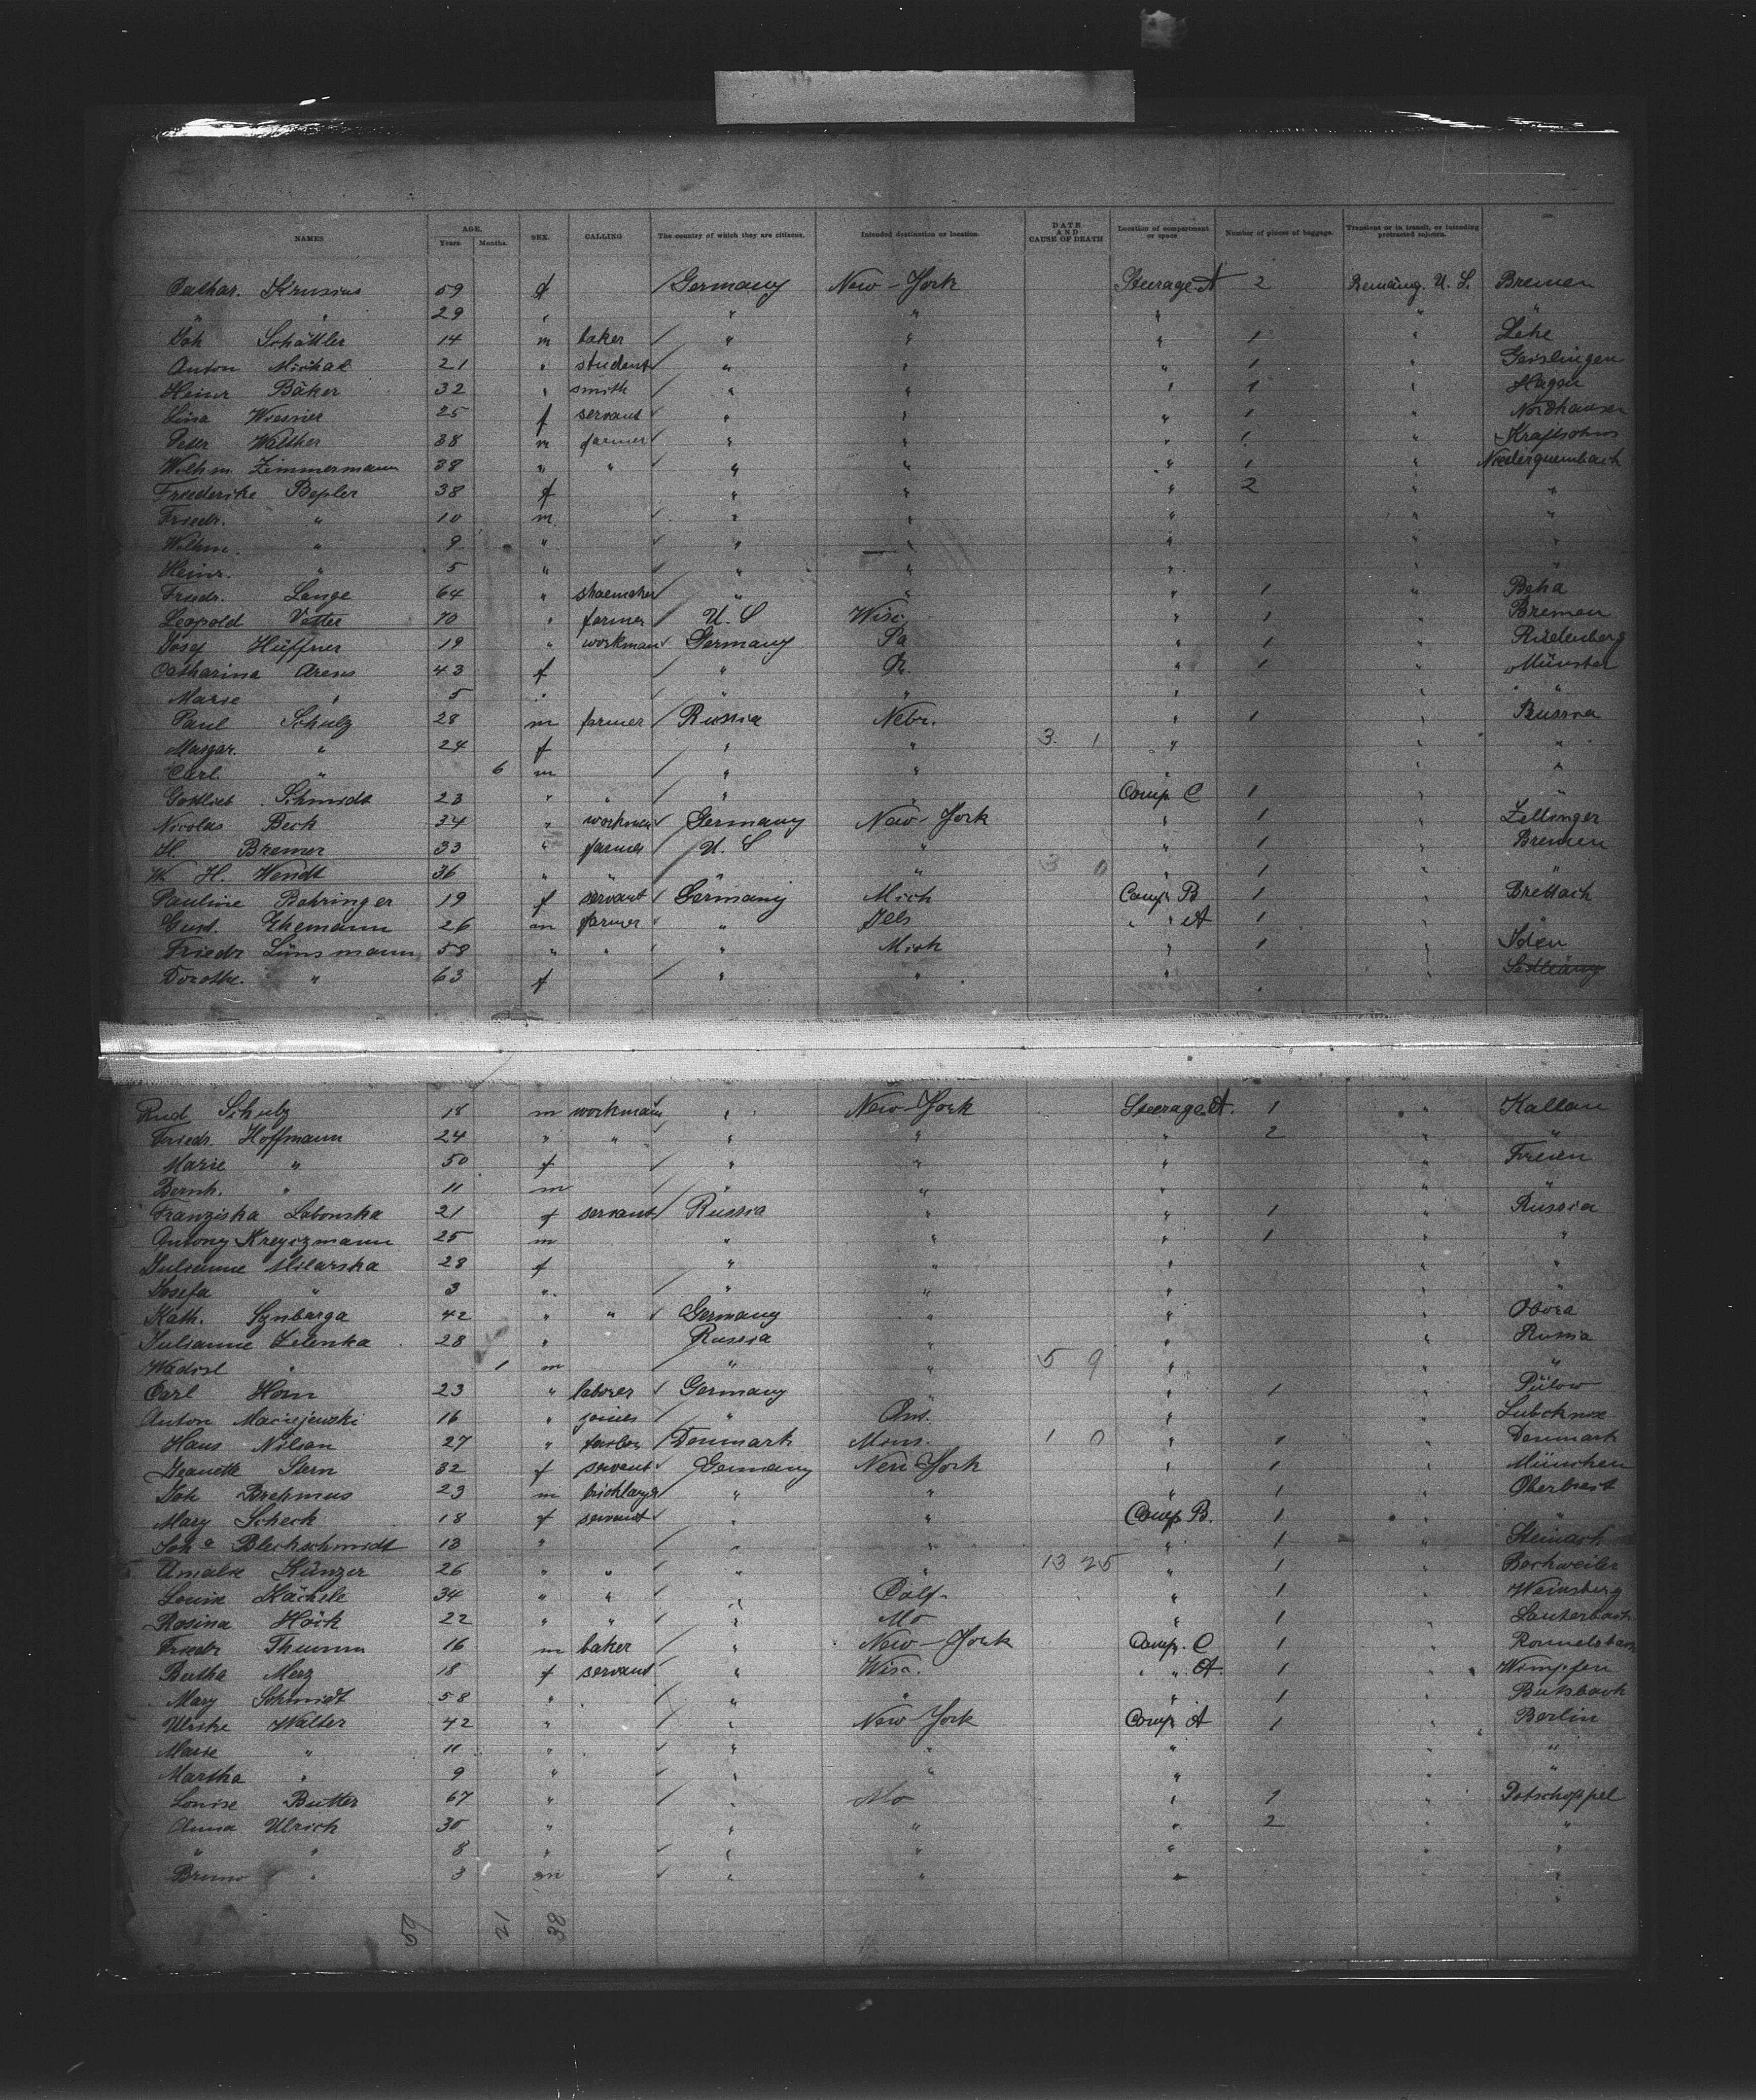 NAMES AGE. Years. Months. SEX. CALLING The country of which they are citizens. Intended destination or location. DATE AND CAUSE OF DEATH Location of compartment or space Number of pieces of baggage. Transient or in transit, or intending protracted sojourn.
Cathar. Krusius 59 f Germany New-York Steerage A 2 Remaing. U. S. Bremen
" " 29 " " " " " "
Joh Schättler 14 m baker " " " 1 " Lehe
Anton Michal 21 " student " " " 1 " Geislingen
Heinr Bäker 32 " smith " " " 1 " Hagen
Lina Wiesner 25 f servant " " " 1 " Nordhausen
Peter Walther 38 m farmer " " " 1 "
Wilhm. Zimmermann 38 " " " " " 1 "
Friederike Bepler 38 f " " " 2 " "
Friedr. " 10 m " " " " "
Wilhm. " 9 " " " " " "
Heinr. " 5 " " " " " "
Friedr. Lange 64 " shoemaker " " " 1 " Beha
Leopold Vetter 70 " farmer U. S Wisc. " 1 " Bremen
Josef Hüffner 19 " workman Germany Pa " 1 " Riedenberg
Catharina Arens 43 f " " 1 " Münster
Marie " 5 " " " " " "
Paul Schulz 28 m farmer Russia Nebr. " 1 " Russia
Margar. " 24 f " " 3 1 " " "
Carl " 6 m " " " " "
Gottlieb Schmidt 23 " " " " Comp. C 1 " "
Nicolas Beck 34 " workman Germany New-York " 1 " Zeltinger
H. Bremer 33 " farmer U. S " " 1 " Bremen
W. H. Wendt 36 " " " " 3 0 " 1 " "
Pauline Bahringer 19 f servant Germany Mich Comp. B 1 " Brettach
Gust. Ehemann 26 m farmer " " " A 1 " "
Friedr Lünsmann 58 " " " Mich " 1 " Iden
Dorothe. " 63 f " " " "
Rud Schulz 18 m workman " New-York Steerage A. 1 " Kallan
Friedr. Hoffmann 24 " " " " " 2 " "
Marie " 50 f " " " " Freien
Bernh. " 11 m " " " " "
Franziska Labonska 21 f servant Russia " " 1 " Russia
Antony Kreyszmann 25 m " " " 1 " "
Julianne Milarska 28 f " " " " "
Josefa " 3 " " " " " "
Kath. Synbarga 42 " " Germany " " " Obora
Julianne Zelenka 28 " Russia " " " Russia
Wadisl " 1 m " " 5 9 " " "
Carl Horn 23 " laborer Germany " " 1 " Pülow
Anton Maciejewski 16 " joiner " " "
Hans Nilsen 27 " Denmark Minn. 1 0 " 1 " Denmark
Jeanette Stern 32 f servant Germany New York " 1 " München
Joh Brehmus 23 m bricklayer " " " 1 "
Mary Scheck 18 f servant " " Comp B. 1 " "
Joha Blechschmidt 13 " " " " 1 " Steinach
Amalie Künzer 26 " " " " 13 25 " 1 " Bockweiler
Louise Kächele 34 " " " Calf. " 1 " Weinsberg
Rosina Höck 22 " " " Mo " 1 " Lauterbach
Friedr Thumm 16 m baker " New-York Comp. C 1 "
Bertha Merz 18 f servant " Wisc. " " A. 1 " Wimpfen
Mary Schmidt 58 " " " " 1 " Butzbach
Ulrike Walter 42 " " New-York Comp. A 1 " Berlin
Marie " 11 " " " " " "
Martha " 9 " " " " " "
Louise Butter 67 " " Mo " 1 " Potschappel
Anna Ulrich 30 " " " " 2 " "
" " 8 " " " " " "
Bruno " 3 m " " " "
59 21 38